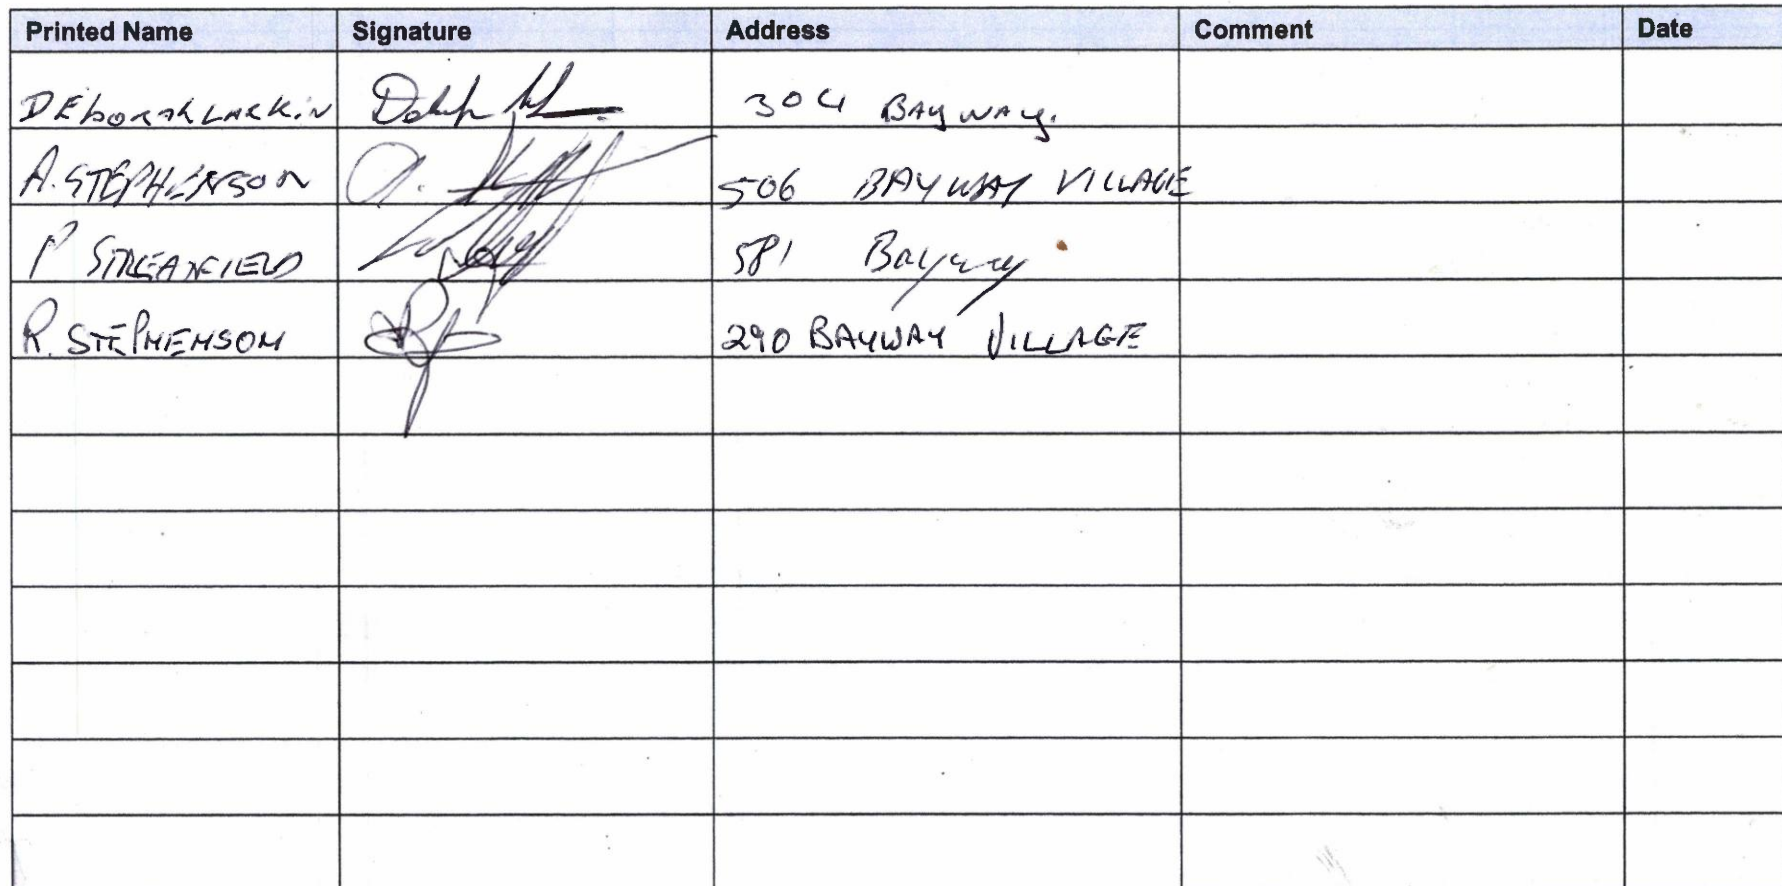 Printed Name Signature Address Comment Date
DEborah LARKiN 304 BAYWAY.
A. STEPHENSON 506 BAYWAY VILLAGE
P STREATFIELD 581 Bayway
R. STEPHENSON 290 BAYWAY VILLAGE